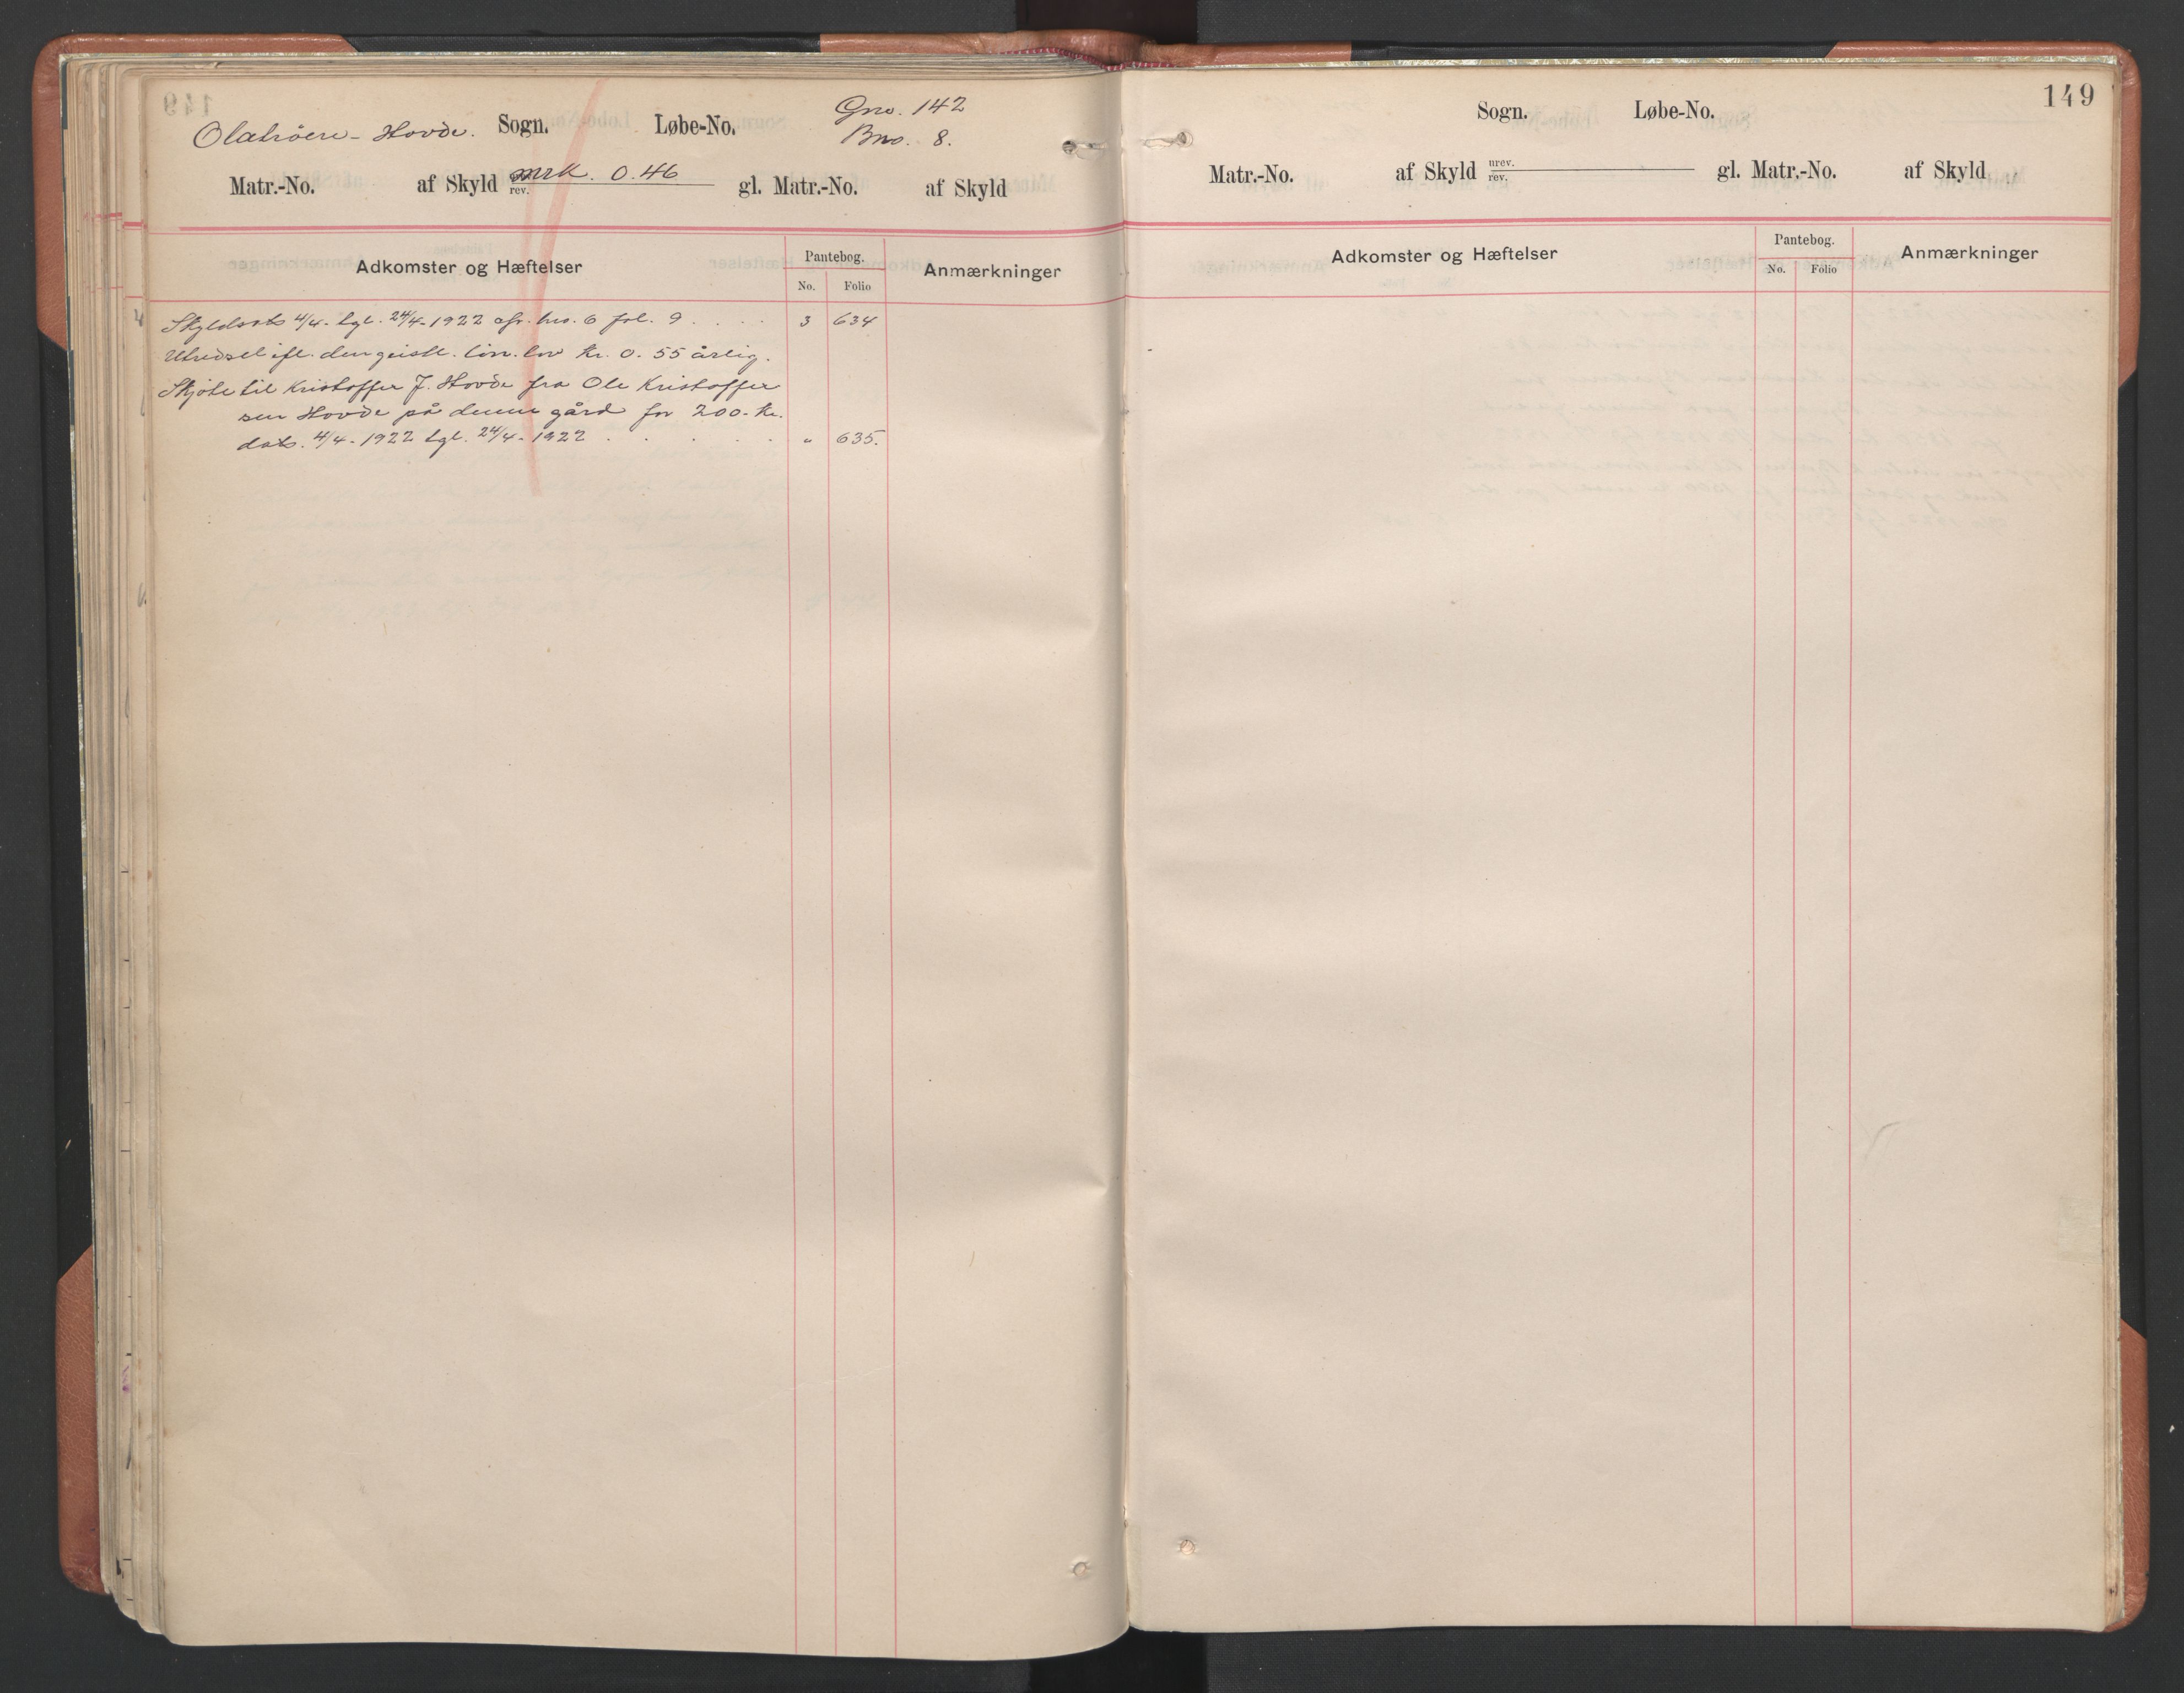 Olatröen - Hovde. Sogn. Løbe-No. Gno. 142
Bno. 8.
Matr.-No. af Skyld mrk. 0.46 rev. gl. Matr.-No. af Skyld
Adkomster og Hæftelser Pantebog. Anmærkninger
No. Folio
Skyldsats 4/4- tgl. 24/4-1922 afr. bno. 6 fol. 9 . . . . 3 634
Utredsel ifl. den geistl. lön. lov Kr. 0.55 årlig.
Skjöte til Kristoffer J. Hovde fra Ole Kristoffer
sen Hovde på denne gård for 200- kr.
dats. 4/4-1922 tgl. 24/4-1922 . . . . . " 635.
149
Sogn. Løbe-No.
Matr.-No. af Skyld urev. rev. gl. Matr.-No. af Skyld
Adkomster og Hæftelser Pantebog. Anmærkninger
No. Folio